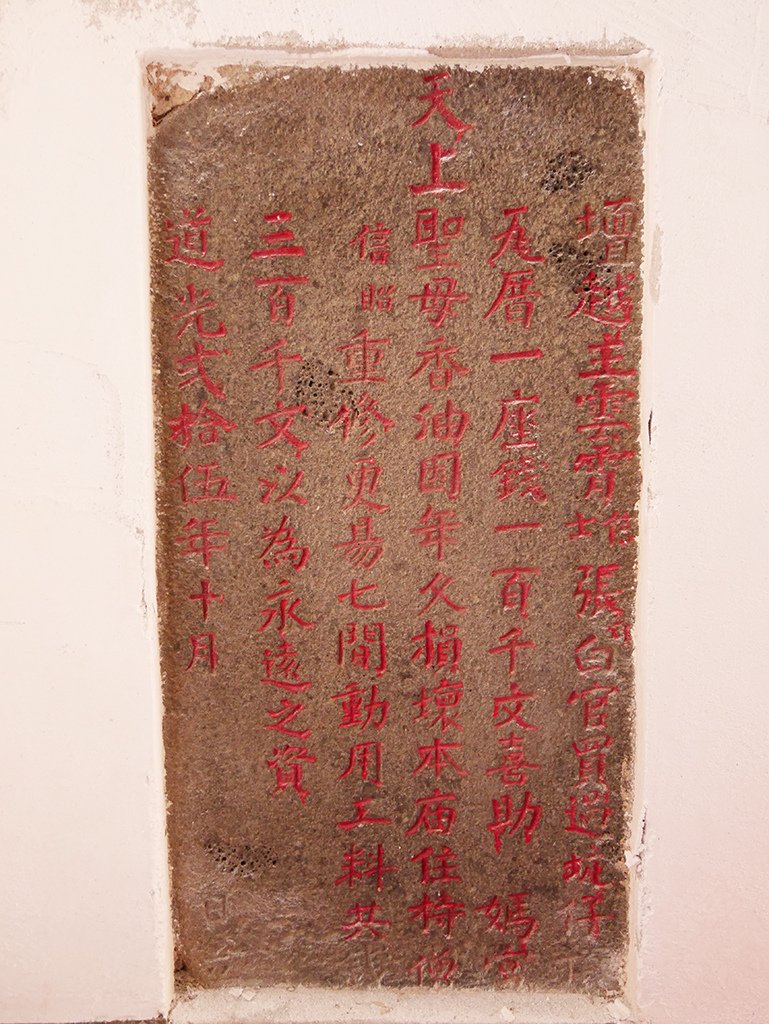 壇越主雲霄 張 白官買過坑仔
瓦厝一座錢一百千文喜助 媽宮
天上聖母香油因年久損壞本庙住持僧
信昭重修更易七間動用工料共
三百千文以為永遠之資
道光弍拾伍年十月 日